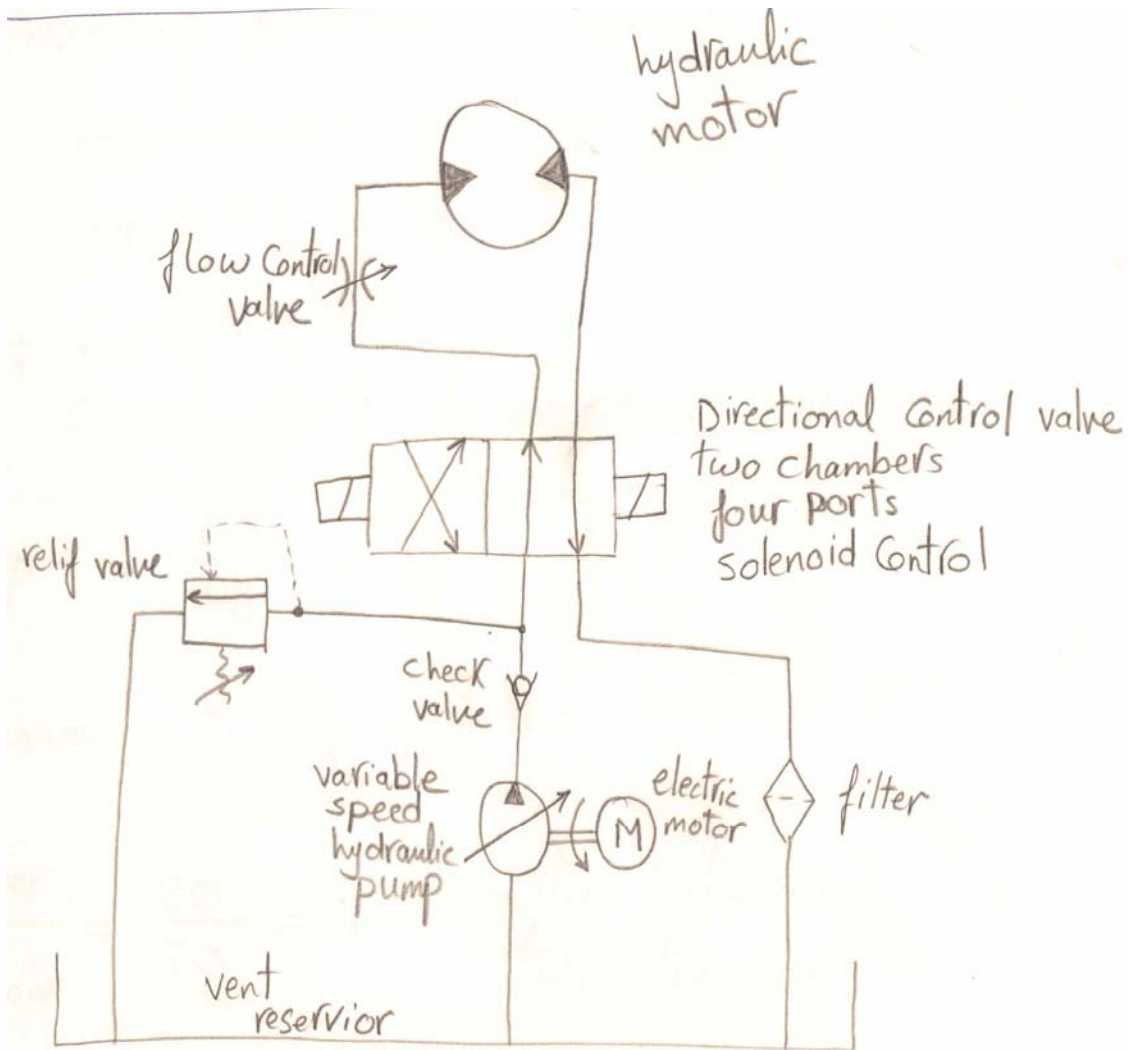 hydraulic
motor
flow Control
valve
Directional Control valve
two chambers
four ports
solenoid Control
relif valve
check
valve
variable
speed
hydraulic
pump
electric
motor
M
filter
vent
reservior